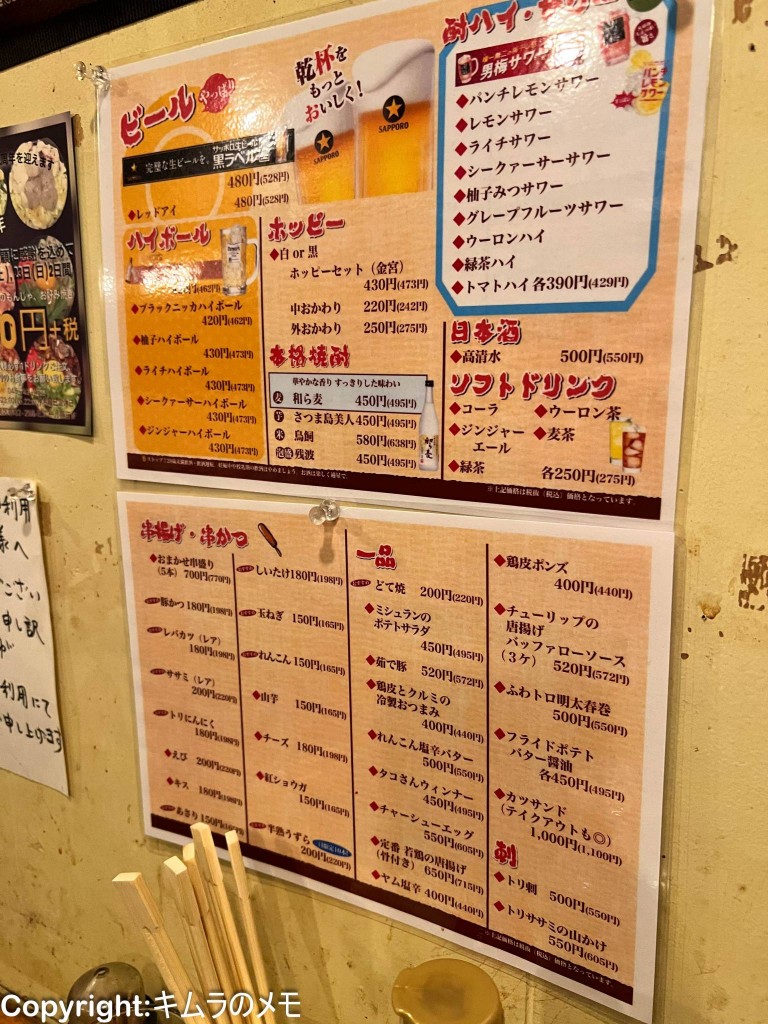 ビール
やっぱり
乾杯を
もっと
おいしく!
SAPPORO
SAPPORO
完璧な生ビールを。
サッポロ生ビール
黒ラベル
480円(528円)
◆レッドアイ
480円(528円)
ハイボール
円(462円)
◆ブラックニッカハイボール
420円(462円)
◆柚子ハイボール
430円(473円)
◆ライチハイボール
430円(473円)
◆シークァーサーハイボール
430円(473円)
◆ジンジャーハイボール
430円(473円)
ホッピー
◆白 or 黒
ホッピーセット(金宮)
430円(473円)
中おかわり 220円(242円)
外おかわり 250円(275円)
本格焼酎
華やかな香り すっきりした味わい
麦 和ら麦 450円(495円)
芋 さつま島美人 450円(495円)
米 鳥飼 580円(638円)
泡盛 残波 450円(495円)
酎ハイ・
男梅サワー
◆パンチレモンサワー
◆レモンサワー
◆ライチサワー
◆シークァーサーサワー
◆柚子みつサワー
◆グレープフルーツサワー
◆ウーロンハイ
◆緑茶ハイ
◆トマトハイ 各390円(429円)
パンチ
レモン
サワー
日本酒
◆高清水 500円(550円)
ソフトドリンク
◆コーラ ◆ウーロン茶
◆ジンジャーエール ◆麦茶
◆緑茶 各250円(275円)
※上記価格は税抜(税込)価格となっています。
串揚げ・串かつ
◆おまかせ串盛り
(5本) 700円(770円)
豚かつ 180円(198円)
レバカツ(レア)
180円(198円)
ササミ(レア)
200円(220円)
トリにんにく
180円(198円)
◆えび 200円(220円)
◆キス 180円(198円)
あさり 150円(165円)
しいたけ 180円(198円)
玉ねぎ 150円(165円)
れんこん 150円(165円)
◆山芋 150円(165円)
◆チーズ 180円(198円)
◆紅ショウガ
150円(165円)
半熟うずら
200円(220円)
一品
どて焼 200円(220円)
◆ミシュランの
ポテトサラダ
450円(495円)
◆茹で豚 520円(572円)
◆鶏皮とクルミの
冷製おつまみ
400円(440円)
◆れんこん塩辛バター
500円(550円)
◆タコさんウィンナー
450円(495円)
◆チャーシューエッグ
550円(605円)
◆定番 若鶏の唐揚げ
(骨付き) 650円(715円)
◆ヤム塩辛 400円(440円)
◆鶏皮ポンズ
400円(440円)
◆チューリップの
唐揚げ
バッファローソース
(3ケ) 520円(572円)
◆ふわトロ明太春巻
500円(550円)
◆フライドポテト
バター醤油
各450円(495円)
◆カツサンド
(テイクアウトも◎)
1,000円(1,100円)
刺
◆トリ刺 500円(550円)
◆トリササミの山かけ
550円(605円)
※上記価格は税抜(税込)価格となっています。
周年を迎えます
間に感謝を込めて
23日(日)2日間
のもんじゃ、お好み焼き
0円+税
利用
様へ
ございま
申し訳
が
利用にて
申し上げます
Copyright:キムラのメモ